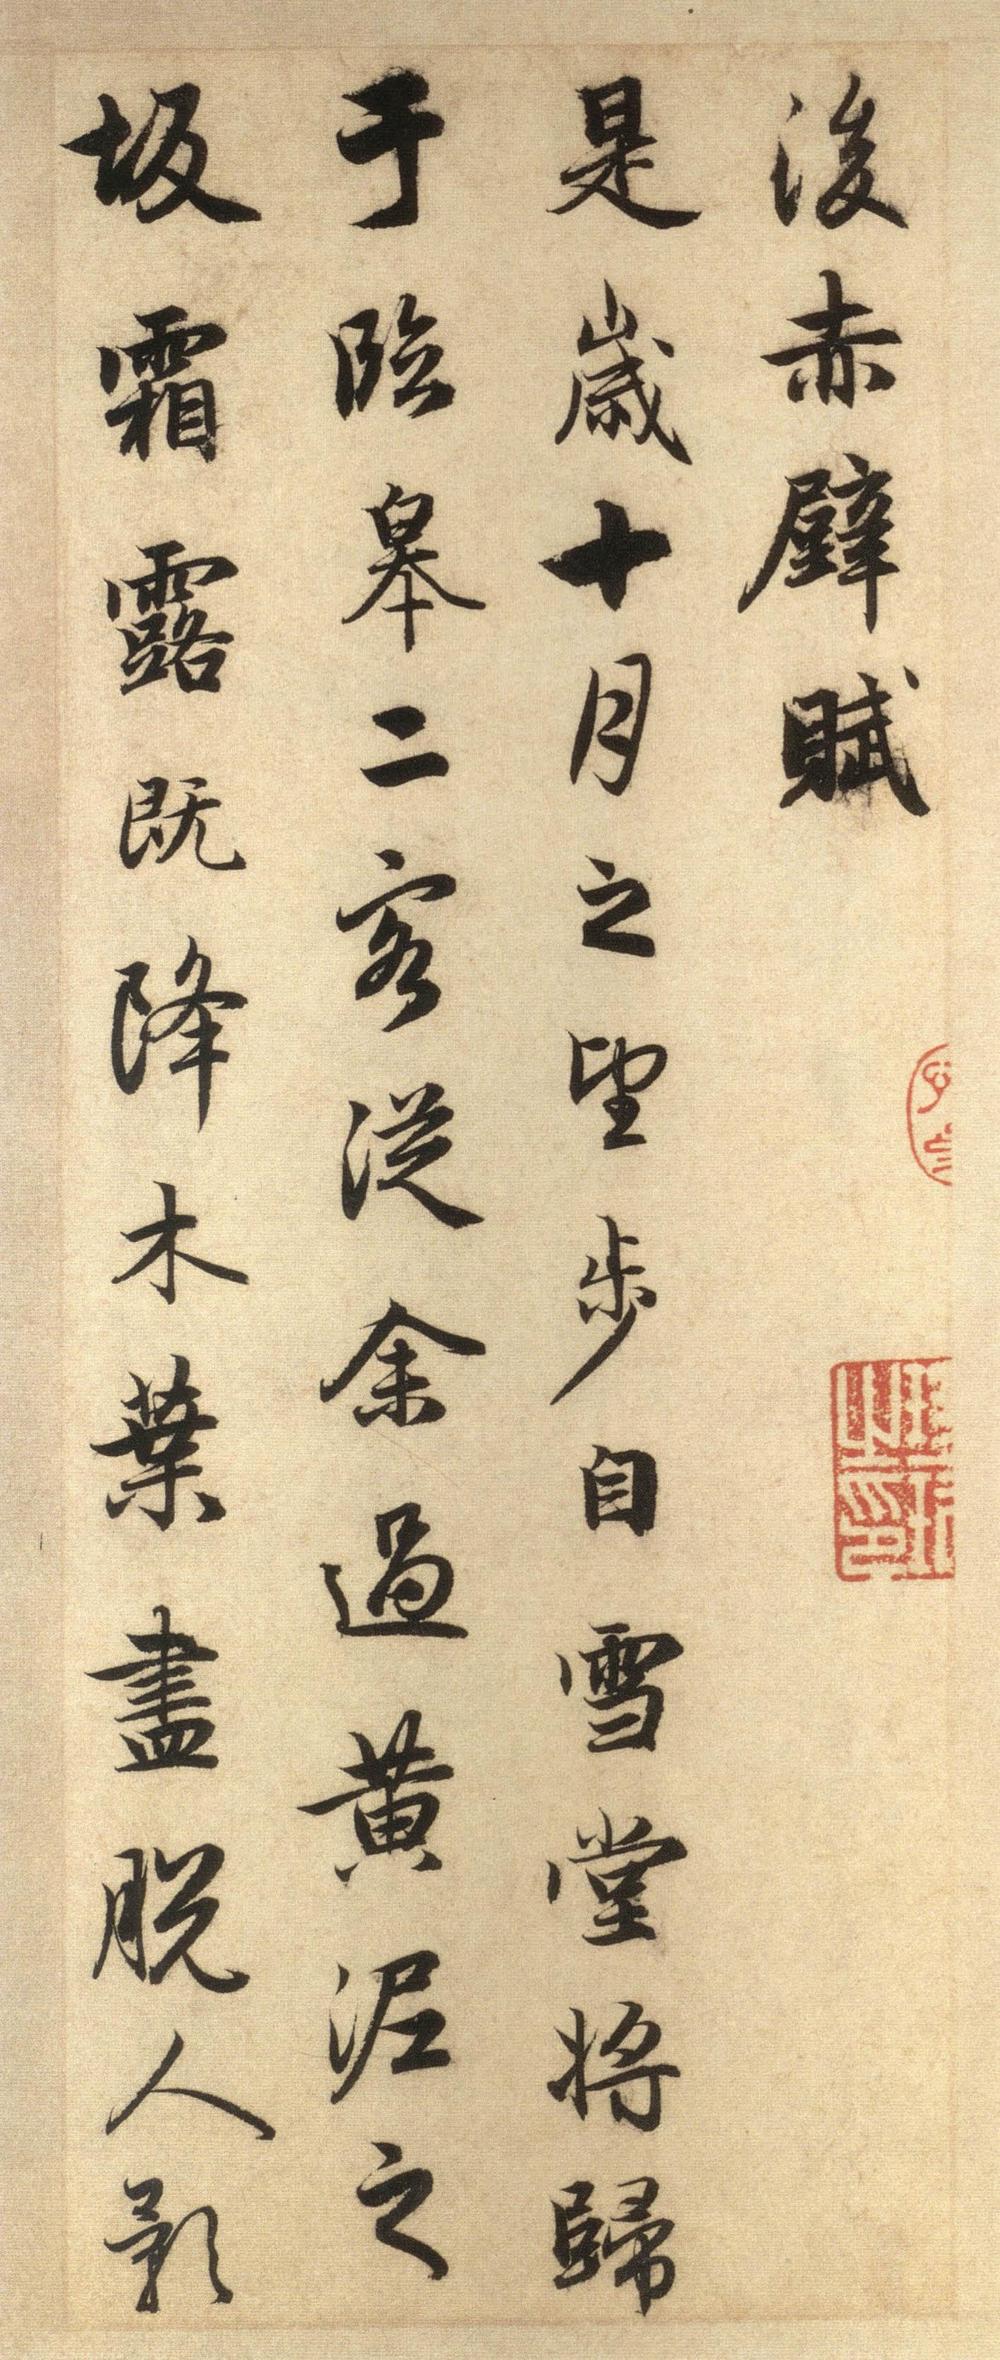 後赤壁賦
是歲十月之望步自雪堂將歸
于臨皋二客從余過黄泥之
坂霜露既降木葉盡脱人影